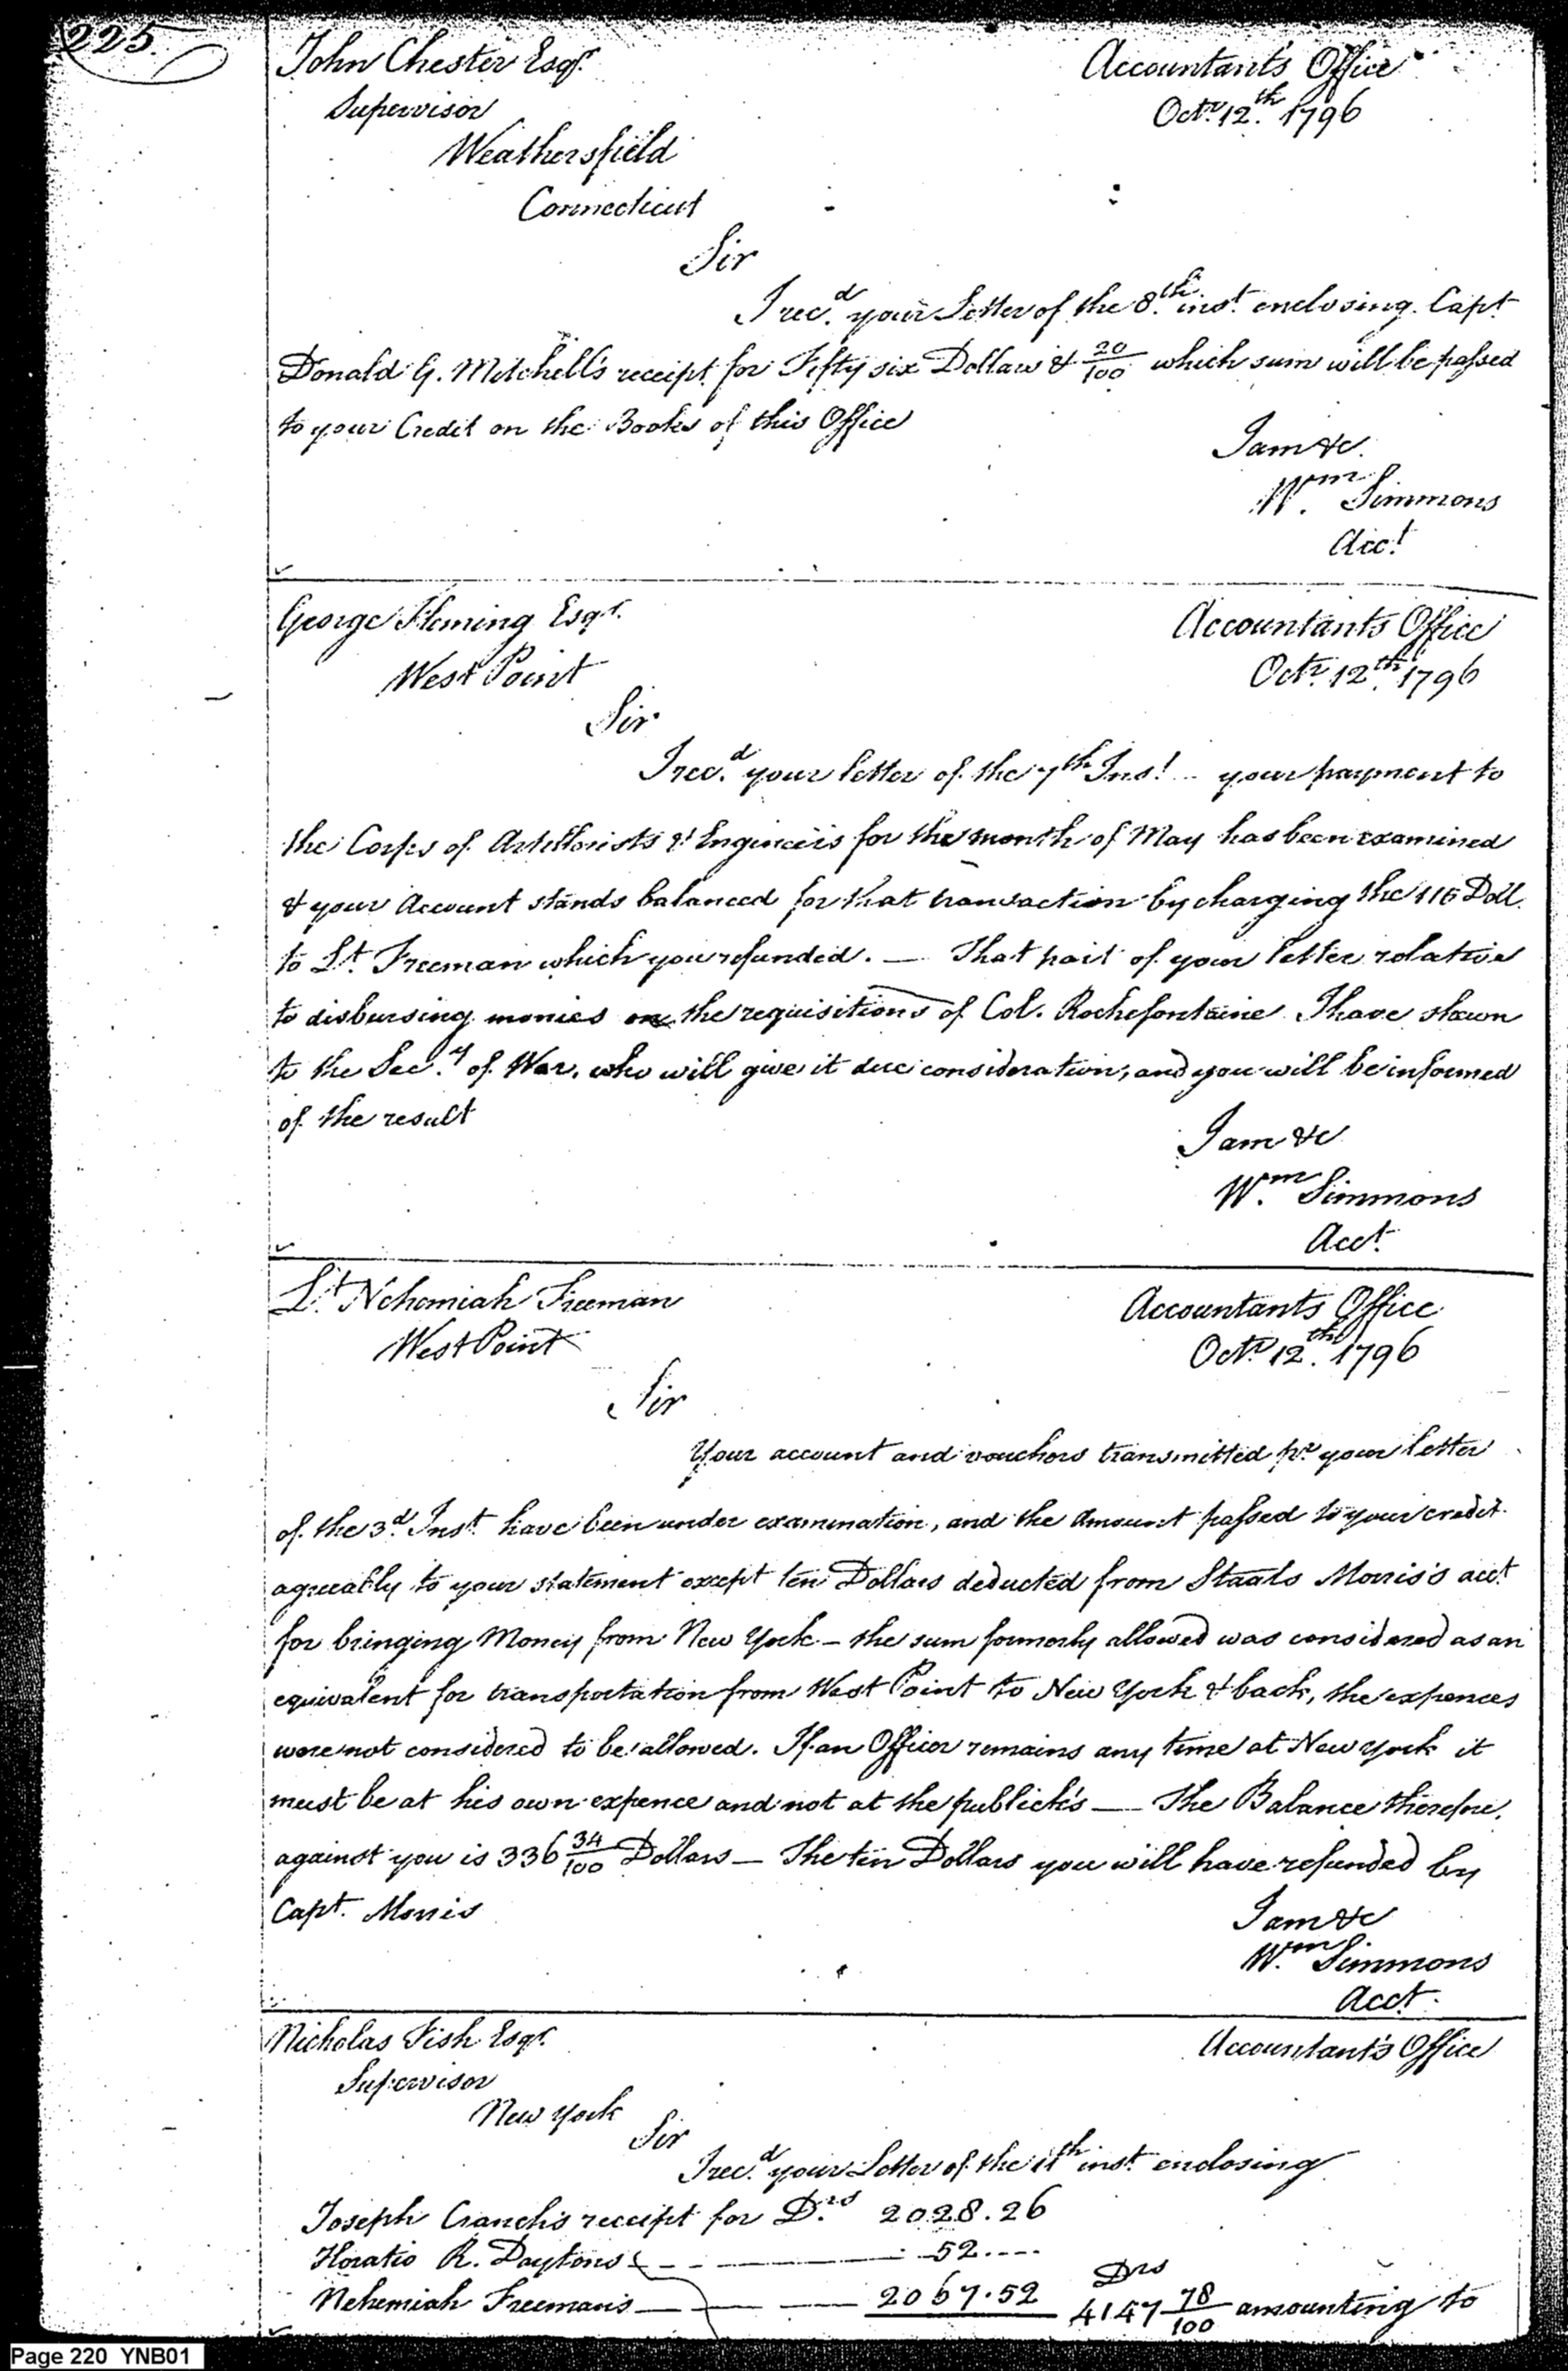 225.
John Chester Esqr. Accountant's Office
Supervisor Octr. 12th. 1796
Weathersfield
Connecticut
Sir
I recd. your Letter of the 8th. inst. enclosing Capt
Donald G. Mitchell's receipt for Fifty six Dollars & 20/100 which sum will be passed
to your Credit on the Books of this Office
I am &c.
Wm. Simmons
Acct
George Fleming Esqr. Accountants Office
West Point Octr. 12th. 1796
Sir
I recd. your letter of the 7th Inst. your payment to
the Corps of Artillorists & Engineers for the month of May has been examined
& your Account stands balanced for that transaction by charging the 116 Doll.
to Lt. Freeman which you refunded. — That part of your letter relative
to disbursing monies on the requisitions of Col. Rochefontaine I have shewn
to the Secy. of War, who will give it due consideration, and you will be informed
of the result
I am &c
Wm. Simmons
Acct.
Lt. Nehemiah Freeman Accountants Office
West Point Octr. 12th. 1796
Sir
Your account and vouchers transmitted pr. your letter
of the 3d. Inst. have been under examination, and the amount passed to your credit
agreeably to your statement except ten Dollars deducted from Staats Morris's acct.
for bringing Money from New York – the sum formerly allowed was considered as an
equivalent for transportation from West Point to New York & back, the expences
were not considered to be allowed. If an Officer remains any time at New York it
must be at his own expence and not at the publick's — The Balance therefore,
against you is 336 34/100 Dollars — The ten Dollars you will have refunded by
Capt. Morris
I am &c
Wm. Simmons
Acct.
Nicholas Fish Esqr. Accountant's Office
Supervisor
New York
Sir
I recd. your Letter of the 11th inst. enclosing
Joseph Cranch's receipt for Drs. 2028.26
Horatio R. Daytons — — 52....
Nehemiah Freeman's — — 2067.52 Drs 4147 78/100 amounting to
Page 220 YNB01